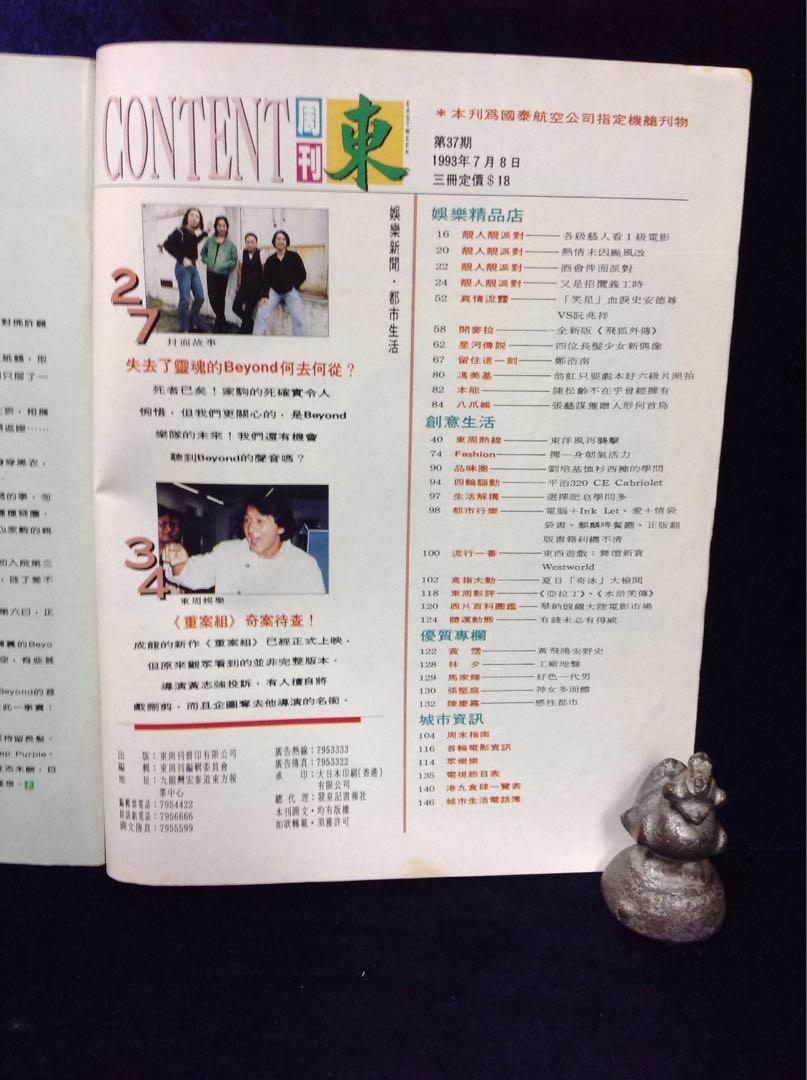 CONTENT
周刊
東
EASTWEEK
*本刊爲國泰航空公司指定機艙刊物
第37期
1993年7月8日
三冊定價$18
娛樂新聞·都市生活
27
封面故事
失去了靈魂的Beyond何去何從？
死者已矣！家駒的死確實令人
惋惜，但我們更關心的，是Beyond
樂隊的未來！我們還有機會
聽到Beyond的聲音嗎？
34
東周娛樂
《重案組》奇案待查！
成龍的新作《重案組》已經正式上映，
但原來觀眾看到的並非完整版本，
導演黃志強投訴，有人擅自將
戲刪剪，而且企圖奪去他導演的名銜。
出　版：東周刊督印有限公司
編　輯：東周刊編輯委員會
地　址：九龍灣宏泰道東方報
業中心
編輯部電話：7954422
採訪組電話：7956666
圖文傳真：7955599
廣告熱線：7953333
廣告傳真：7953322
承　印：大日本印刷(香港)
有限公司
總代理：發泉記書報社
本刊圖文·均有版權
如欲轉載·須獲許可
娛樂精品店
16 靚人靚派對——各級藝人看I級電影
20 靚人靚派對——熱情未因颱風改
22 靚人靚派對——酒會俾面派對
24 靚人靚派對——又是招攬義工時
52 真情流露——「笑星」血淚史安德尊
VS阮兆祥
58 開麥拉——全新版《飛狐外傳》
62 星河傳說——四位長髮少女新偶像
67 留住這一刻——鄭浩南
80 馮美基——翁虹只要劇本好六級片照拍
82 本能——陳松齡不在乎曾經擁有
84 八爪娛——張藝謀獲贈人形何首烏
創意生活
40 東周熱線——東洋風再襲擊
74 Fashion——擁一身朝氣活力
90 品味圈——劉培基恤衫西褲的學問
94 四輪驅動——平治320 CE Cabriolet
97 生活解構——選擇肥皂學問多
98 都市行樂——電腦+Ink Let、愛+情袋
袋書、麒麟啤餐廳、正版翻
版書籍糾纏不清
100 流行一番——東西遊戲：舞壇新貴
Westworld
102 食指大動——夏日「奇冰」大檢閱
118 東周影評——《亞拉丁》、《水滸笑傳》
120 西片百科圖鑑——華納覬覦大陸電影市場
124 體運動態——有錢未必有得威
優質專欄
122 黃霑——黃飛鴻妄野史
128 林夕——工廠地盤
129 馬家輝——好色一代男
130 張堅庭——神女多面體
132 陳慶嘉——感性都市
城市資訊
104 周末指南
116 首輪電影資訊
114 眾樂樂
135 電視節目表
140 港九食肆一覽表
146 城市生活電話簿